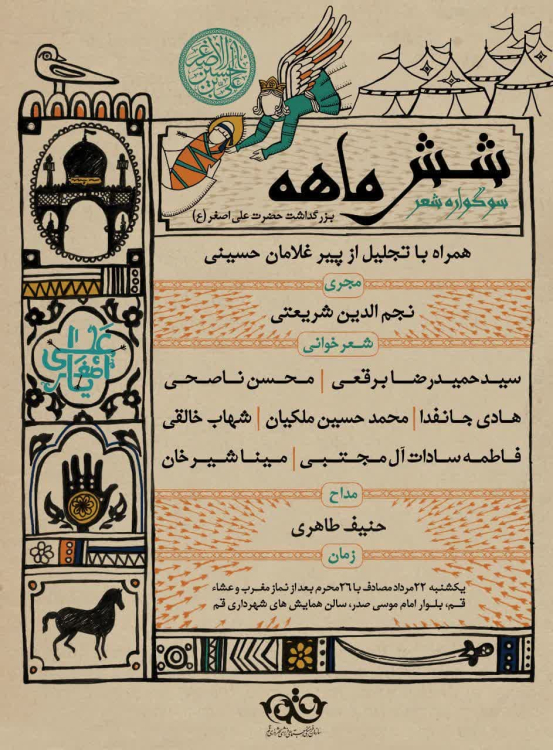 علی بن حسین الاصغر
شش ماهه
سوگواره شعر
بزرگداشت حضرت علی اصغر (ع)
همراه با تجلیل از پیر غلامان حسینی
مجری
نجم الدین شریعتی
شعرخوانی
سیدحمیدرضا برقعی | محسن ناصحی
هادی جانفدا | محمد حسین ملکیان | شهاب خالقی
فاطمه سادات آل مجتبی | مینا شیرخان
مداح
حنیف طاهری
زمان
یکشنبه ۲۲ مرداد مصادف با ۲۶ محرم بعد از نماز مغرب و عشاء
قم، بلوار امام موسی صدر، سالن همایش های شهرداری قم
یا علی اصغر